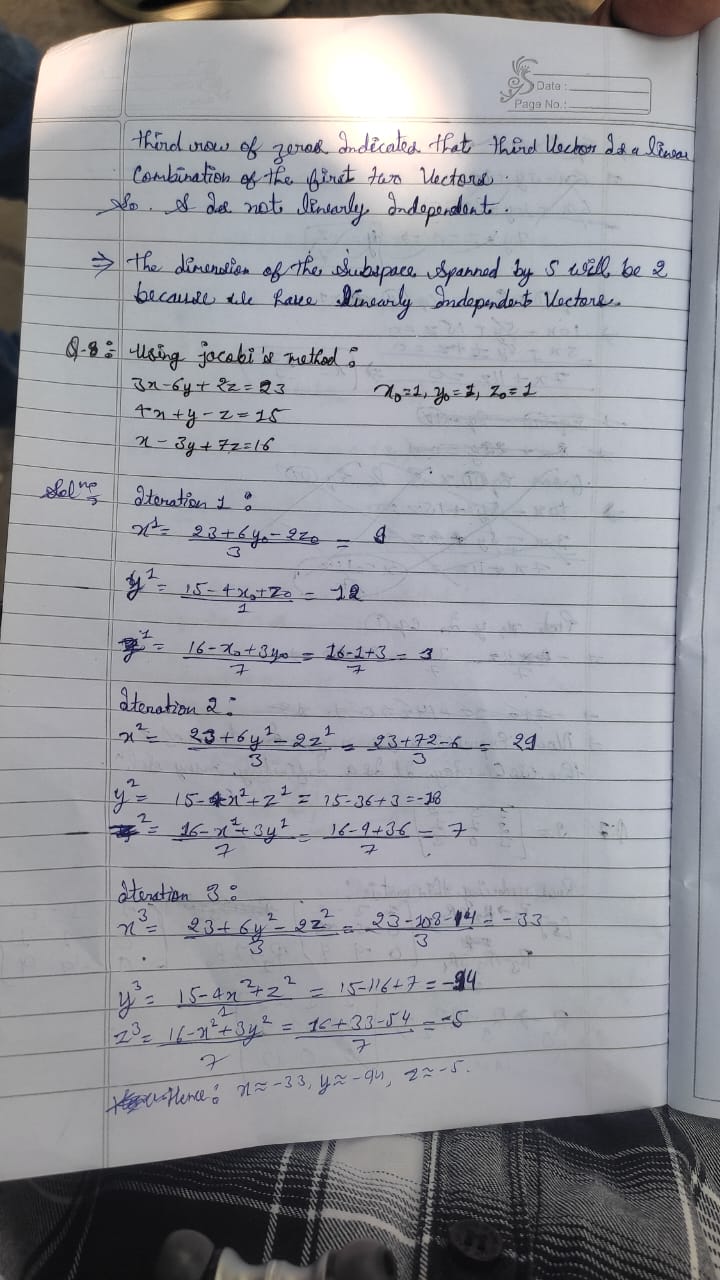 Date :
Page No.:
third row of zeros indicates that third Vector is a linear
Combination of the first two Vectors.
So. S is not linearly independent.
⇒ the dimension of the subspace spanned by S will be 2
because we have linearly independent Vectors.
Q-8: Using jacobi's method:
3x-6y+2z=23 x₀=1, y₀=1, z₀=1
4x+y-z=15
x-3y+7z=16
Solⁿ Iteration 1:
x¹= (23+6y₀-2z₀)/3 = 9
y¹= (15-4x₀+z₀)/1 = 12
¹= (16-x₀+3y₀)/7 = (16-1+3)/7 = 3
Iteration 2:
x²= (23+6y¹-2z¹)/3 = (23+72-6)/3 = 29
y²= 15-4x²+z¹ = 15-36+3=-18
²= (16-x¹+3y¹)/7 = (16-9+36)/7 = 7
Iteration 3:
x³= (23+6y²-2z²)/3 = (23-108-14)/3 = -33
y³= (15-4x²+z²)/1 = 15-116+7=-94
z³= (16-x²+3y²)/7 = (16+33-54)/7 = -5
Hence: x≈-33, y≈-94, z≈-5.